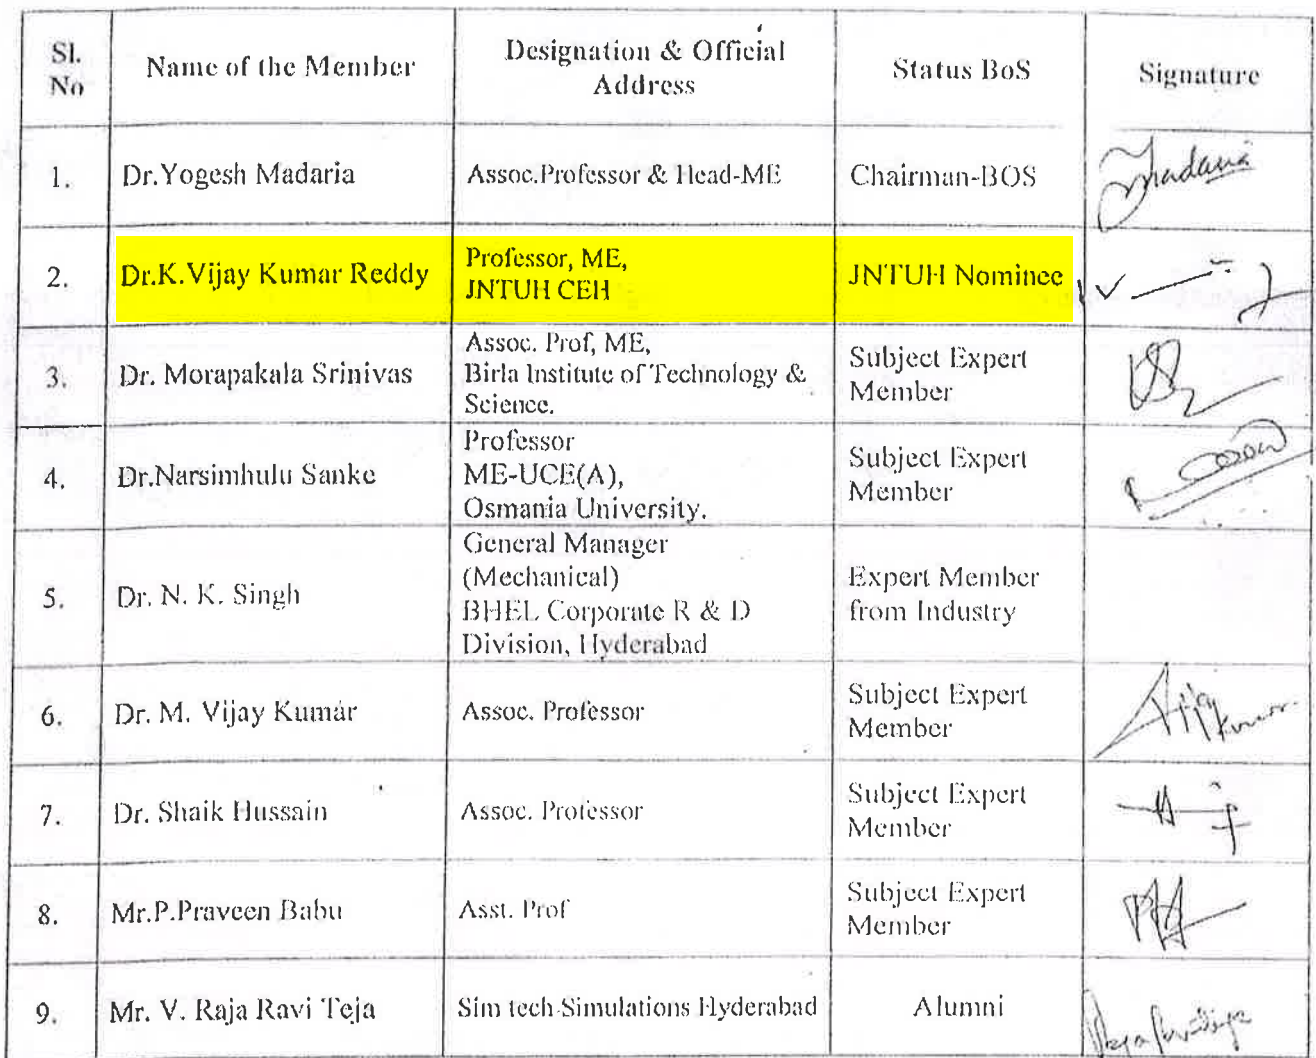 Sl. No Name of the Member Designation & Official Address Status BoS Signature
1. Dr.Yogesh Madaria Assoc.Professor & Head-ME Chairman-BOS Madaria
2. Dr.K.Vijay Kumar Reddy Professor, ME,
JNTUH CEH JNTUH Nominee
3. Dr. Morapakala Srinivas Assoc. Prof, ME,
Birla Institute of Technology &
Science. Subject Expert
Member
4. Dr.Narsimhulu Sanke Professor
ME-UCE(A),
Osmania University. Subject Expert
Member
5. Dr. N. K. Singh General Manager
(Mechanical)
BHEL Corporate R & D
Division, Hyderabad Expert Member
from Industry
6. Dr. M. Vijay Kumar Assoc. Professor Subject Expert
Member Vijay
Kumar
7. Dr. Shaik Hussain Assoc. Professor Subject Expert
Member
8. Mr.P.Praveen Babu Asst. Prof Subject Expert
Member
9. Mr. V. Raja Ravi Teja Sim tech Simulations Hyderabad Alumni